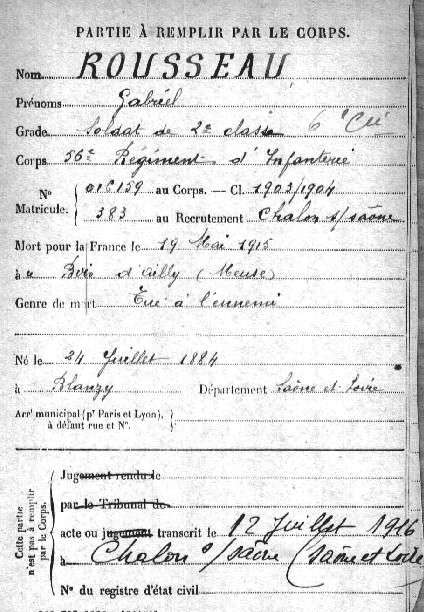 PARTIE À REMPLIR PAR LE CORPS.
Nom ROUSSEAU
Prénoms Gabriel
Grade Soldat de 2e classe 6e Cie
Corps 56e Régiment d'Infanterie
Nº Matricule. 016159 au Corps. — Cl. 1903/1904
383 au Recrutement Chalon s/saône
Mort pour la France le 19 Mai 1915
à u Bois d'Ailly (Meuse)
Genre de mort Tué à l'ennemi
Né le 24 Juillet 1884
à Blanzy Département Saône et Loire
Arrt municipal (pr Paris et Lyon),
à défaut rue et Nº.
Cette partie
n'est pas à remplir
par le Corps.
Jugement rendu le
par le Tribunal de
acte ou jugement transcrit le 12 Juillet 1916
à Chalon s/saône (Saône et Loire
Nº du registre d'état civil